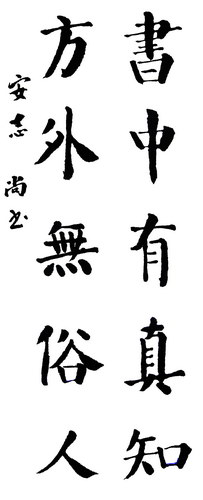 書中有真知
方外無俗人
安志 尚书